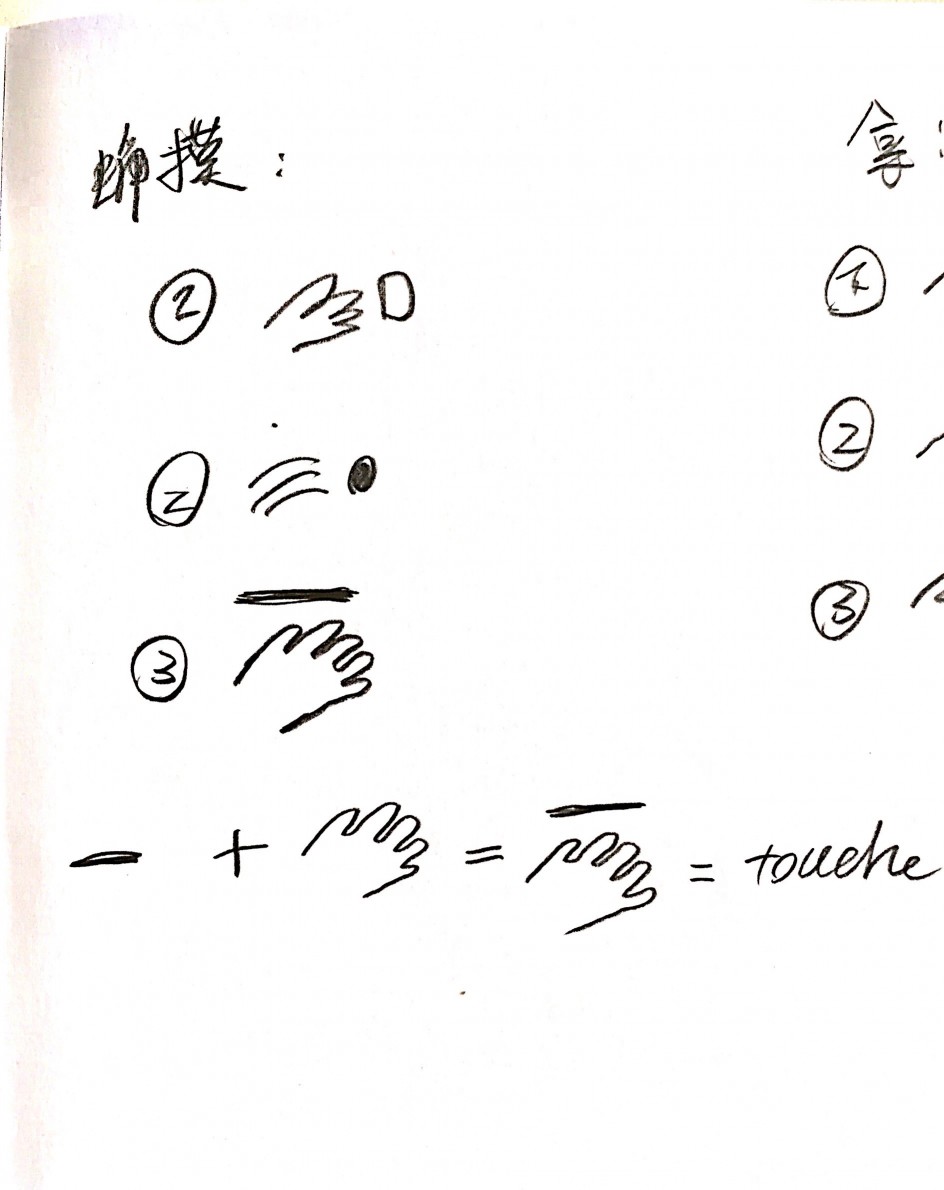 摸: 拿:
② ①
② ②
③ ③
- + = = touche